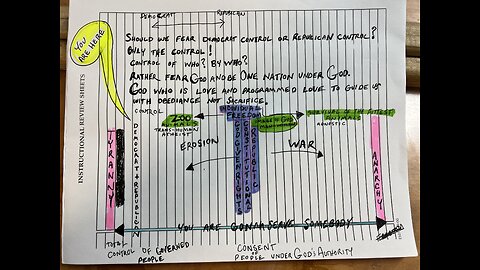 DEMOCRAT REPUBLICAN
SHOULD WE FEAR DEMOCRAT CONTROL OR REPUBLICAN CONTROL?
ONLY THE CONTROL!
CONTROL OF WHO? BY WHO?
RATHER FEAR GOD AND BE ONE NATION UNDER GOD.
GOD WHO IS LOVE AND PROGRAMMED LOVE TO GUIDE US
WITH OBEDIANCE NOT SACRIFICE.
YOU ARE HERE
INSTRUCTIONAL REVIEW SHEETS
CONTROL
ZOO
ANIMALS
TRANS-HUMAN
ATHEIST
INDIVIDUAL
FREEDOM
SURVIVAL OF THE FITTEST
ANIMALS
AGNOSTIC
IMAGE OF GOD
EROSION
WAR
TYRANNY
DEMOCRAT + REPUBLICAN
CONSTITUTIONAL
REPUBLIC
ANARCHY
YOU ARE GONNA SERVE SOMEBODY
TOTAL
CONTROL OF GOVERNED
PEOPLE
CONSENT
OF PEOPLE UNDER GOD'S AUTHORITY